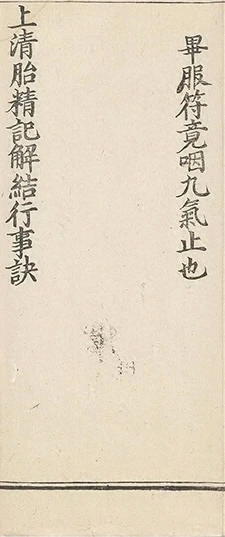 畢服符竟咽九氣止也
上清胎精記解結行事訣